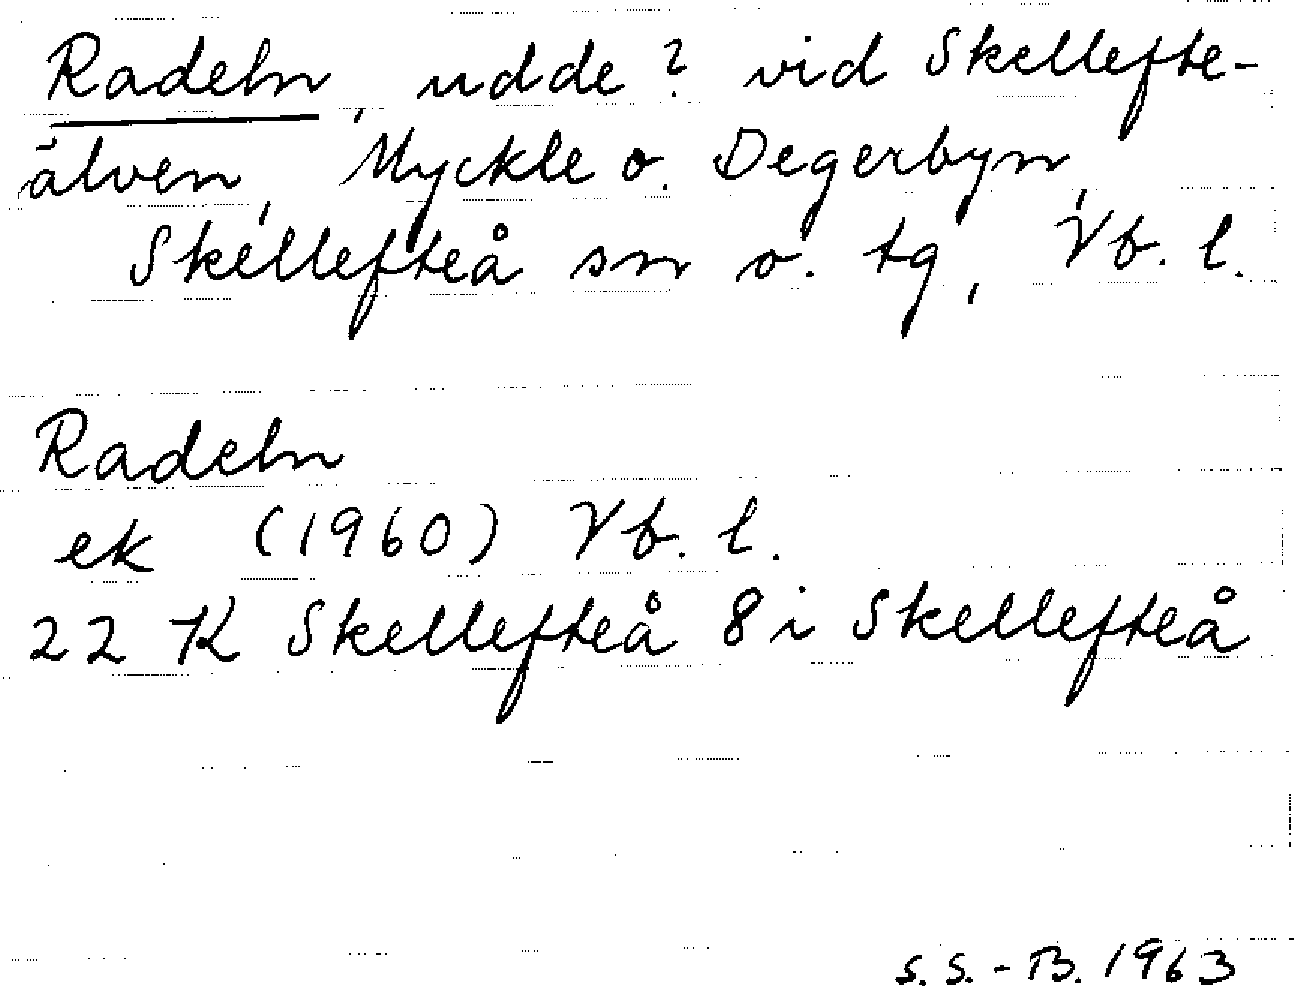 Radeln, udde? vid Skellefte-
älven, Myckle o. Degerbyn,
Skellefteå sn o. tg, Vb. l.
Radeln
ek (1960) Vb. l.
22 K Skellefteå 8 i Skellefteå
S. S. - B. 1963